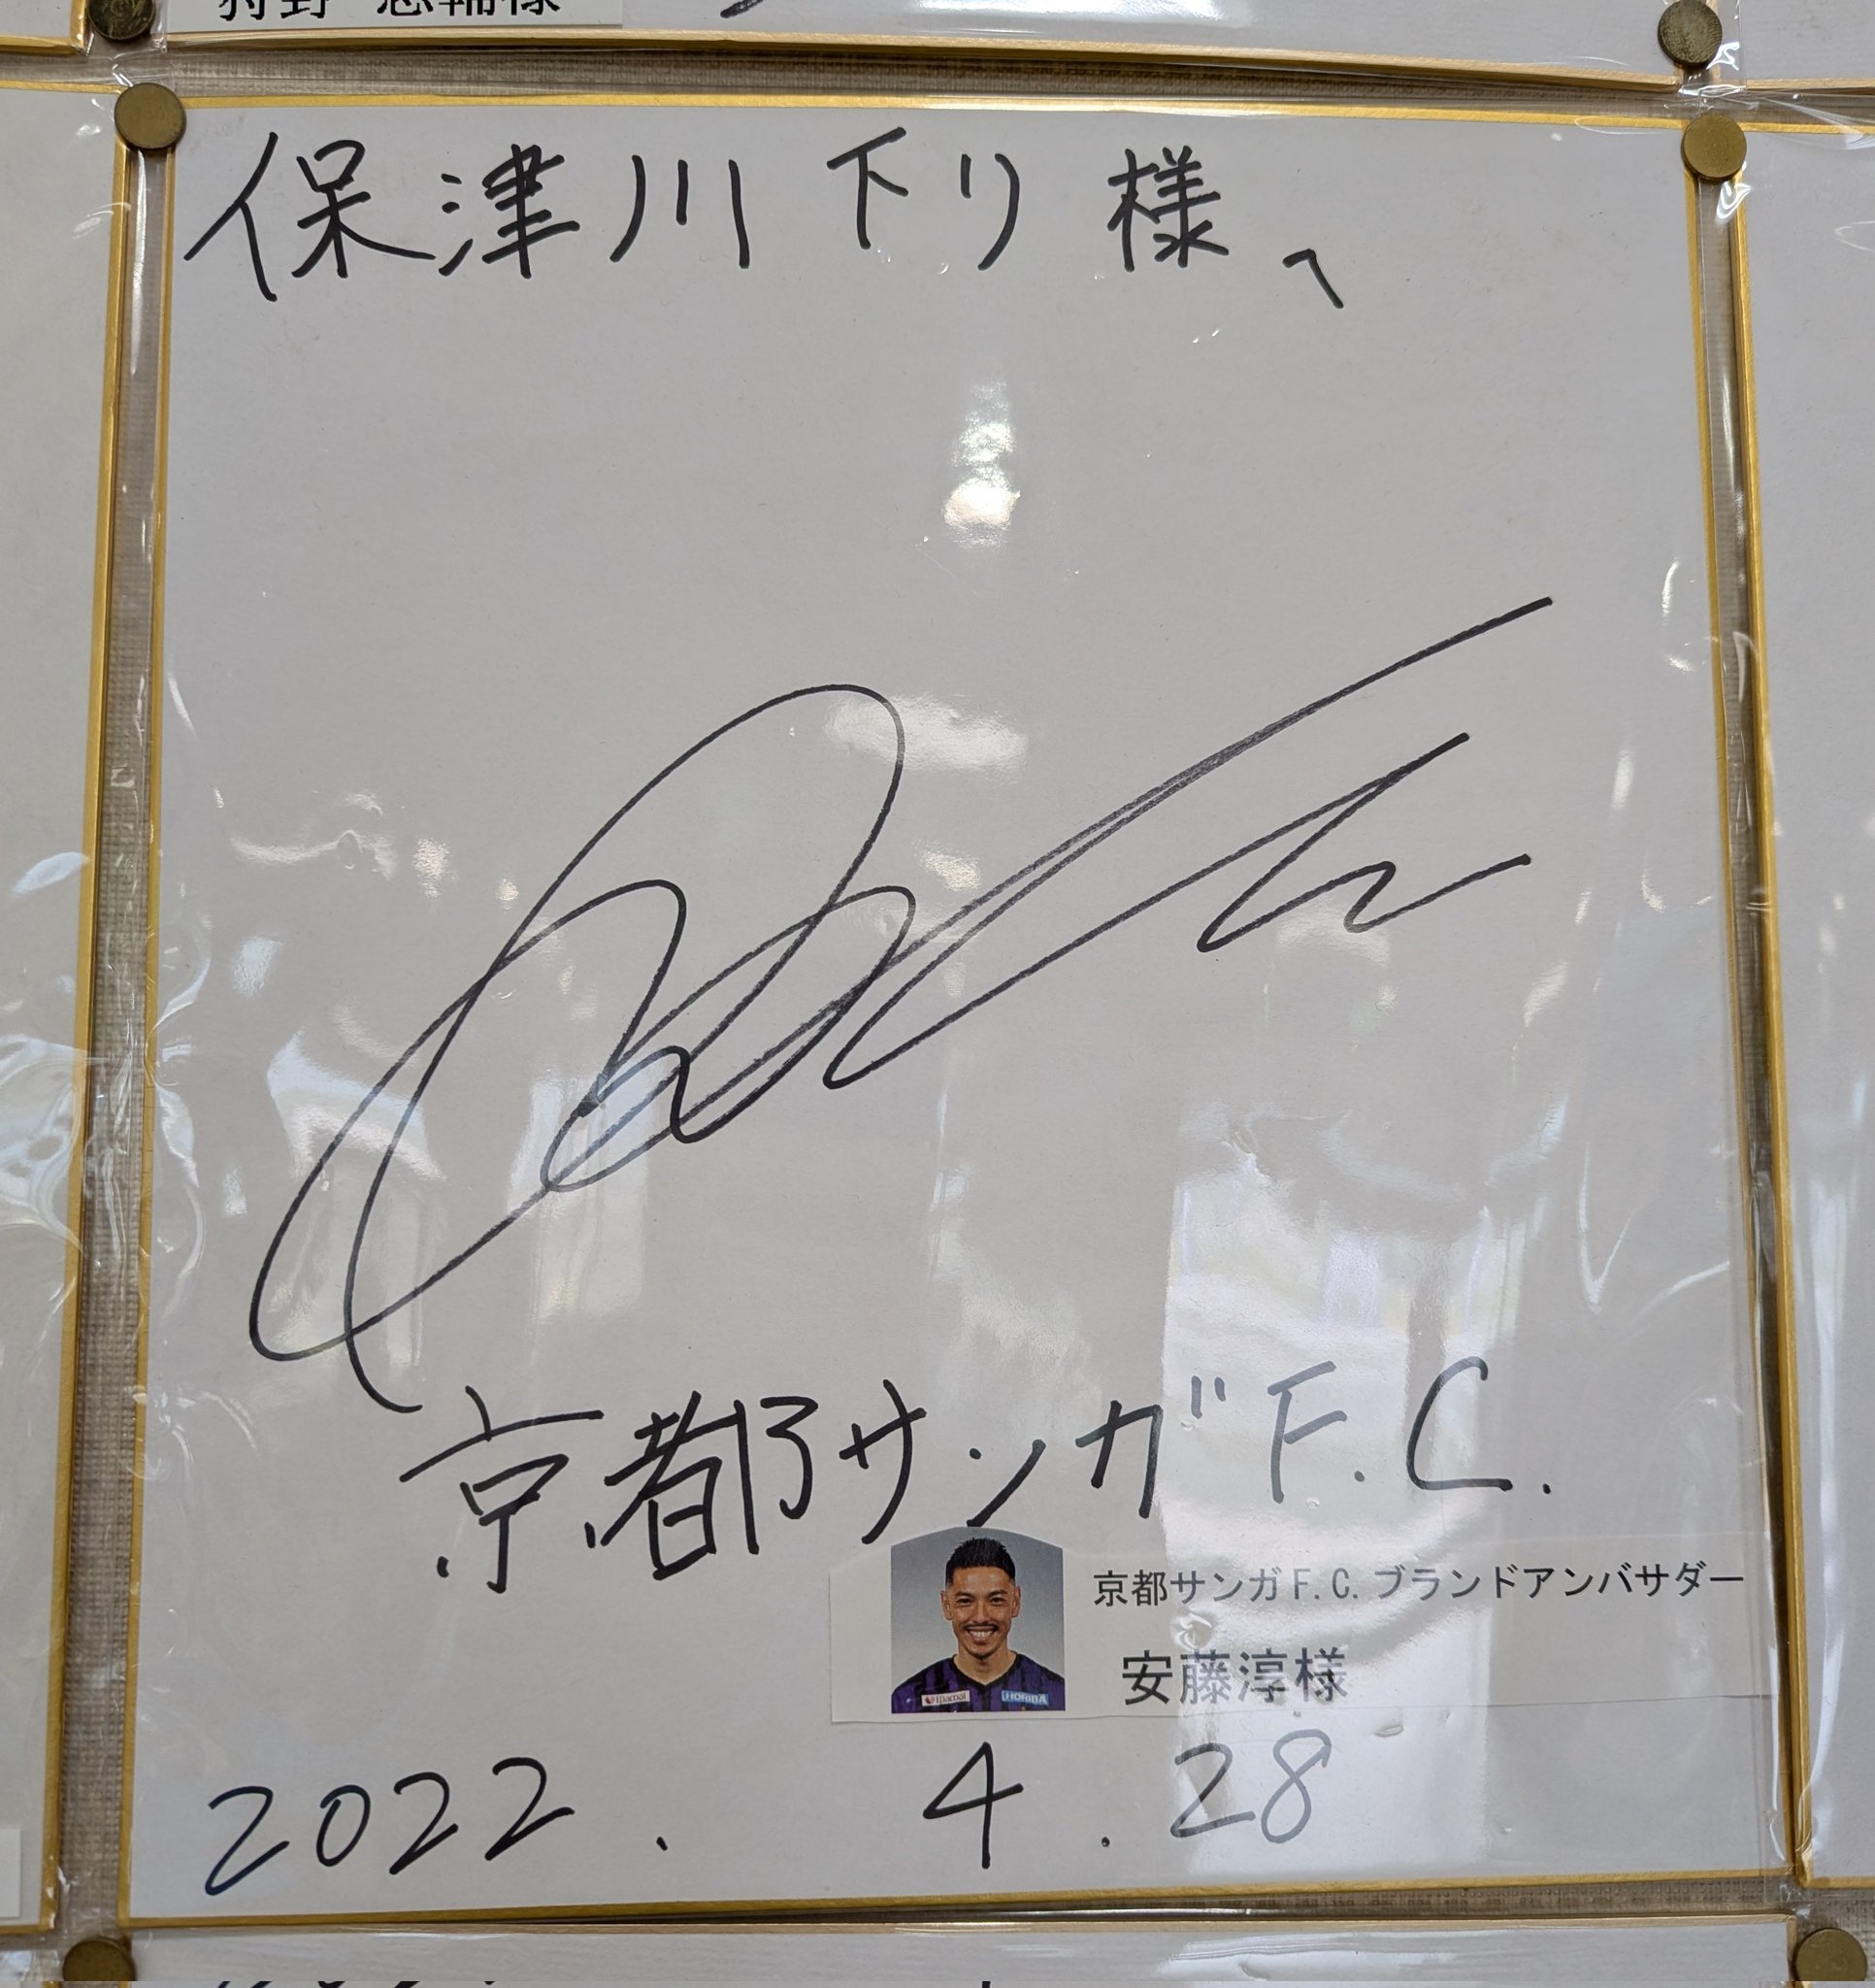 保津川下り様へ
京都サンガF.C.
京都サンガF.C.ブランドアンバサダー
HORIBA
安藤淳様
2022.4.28